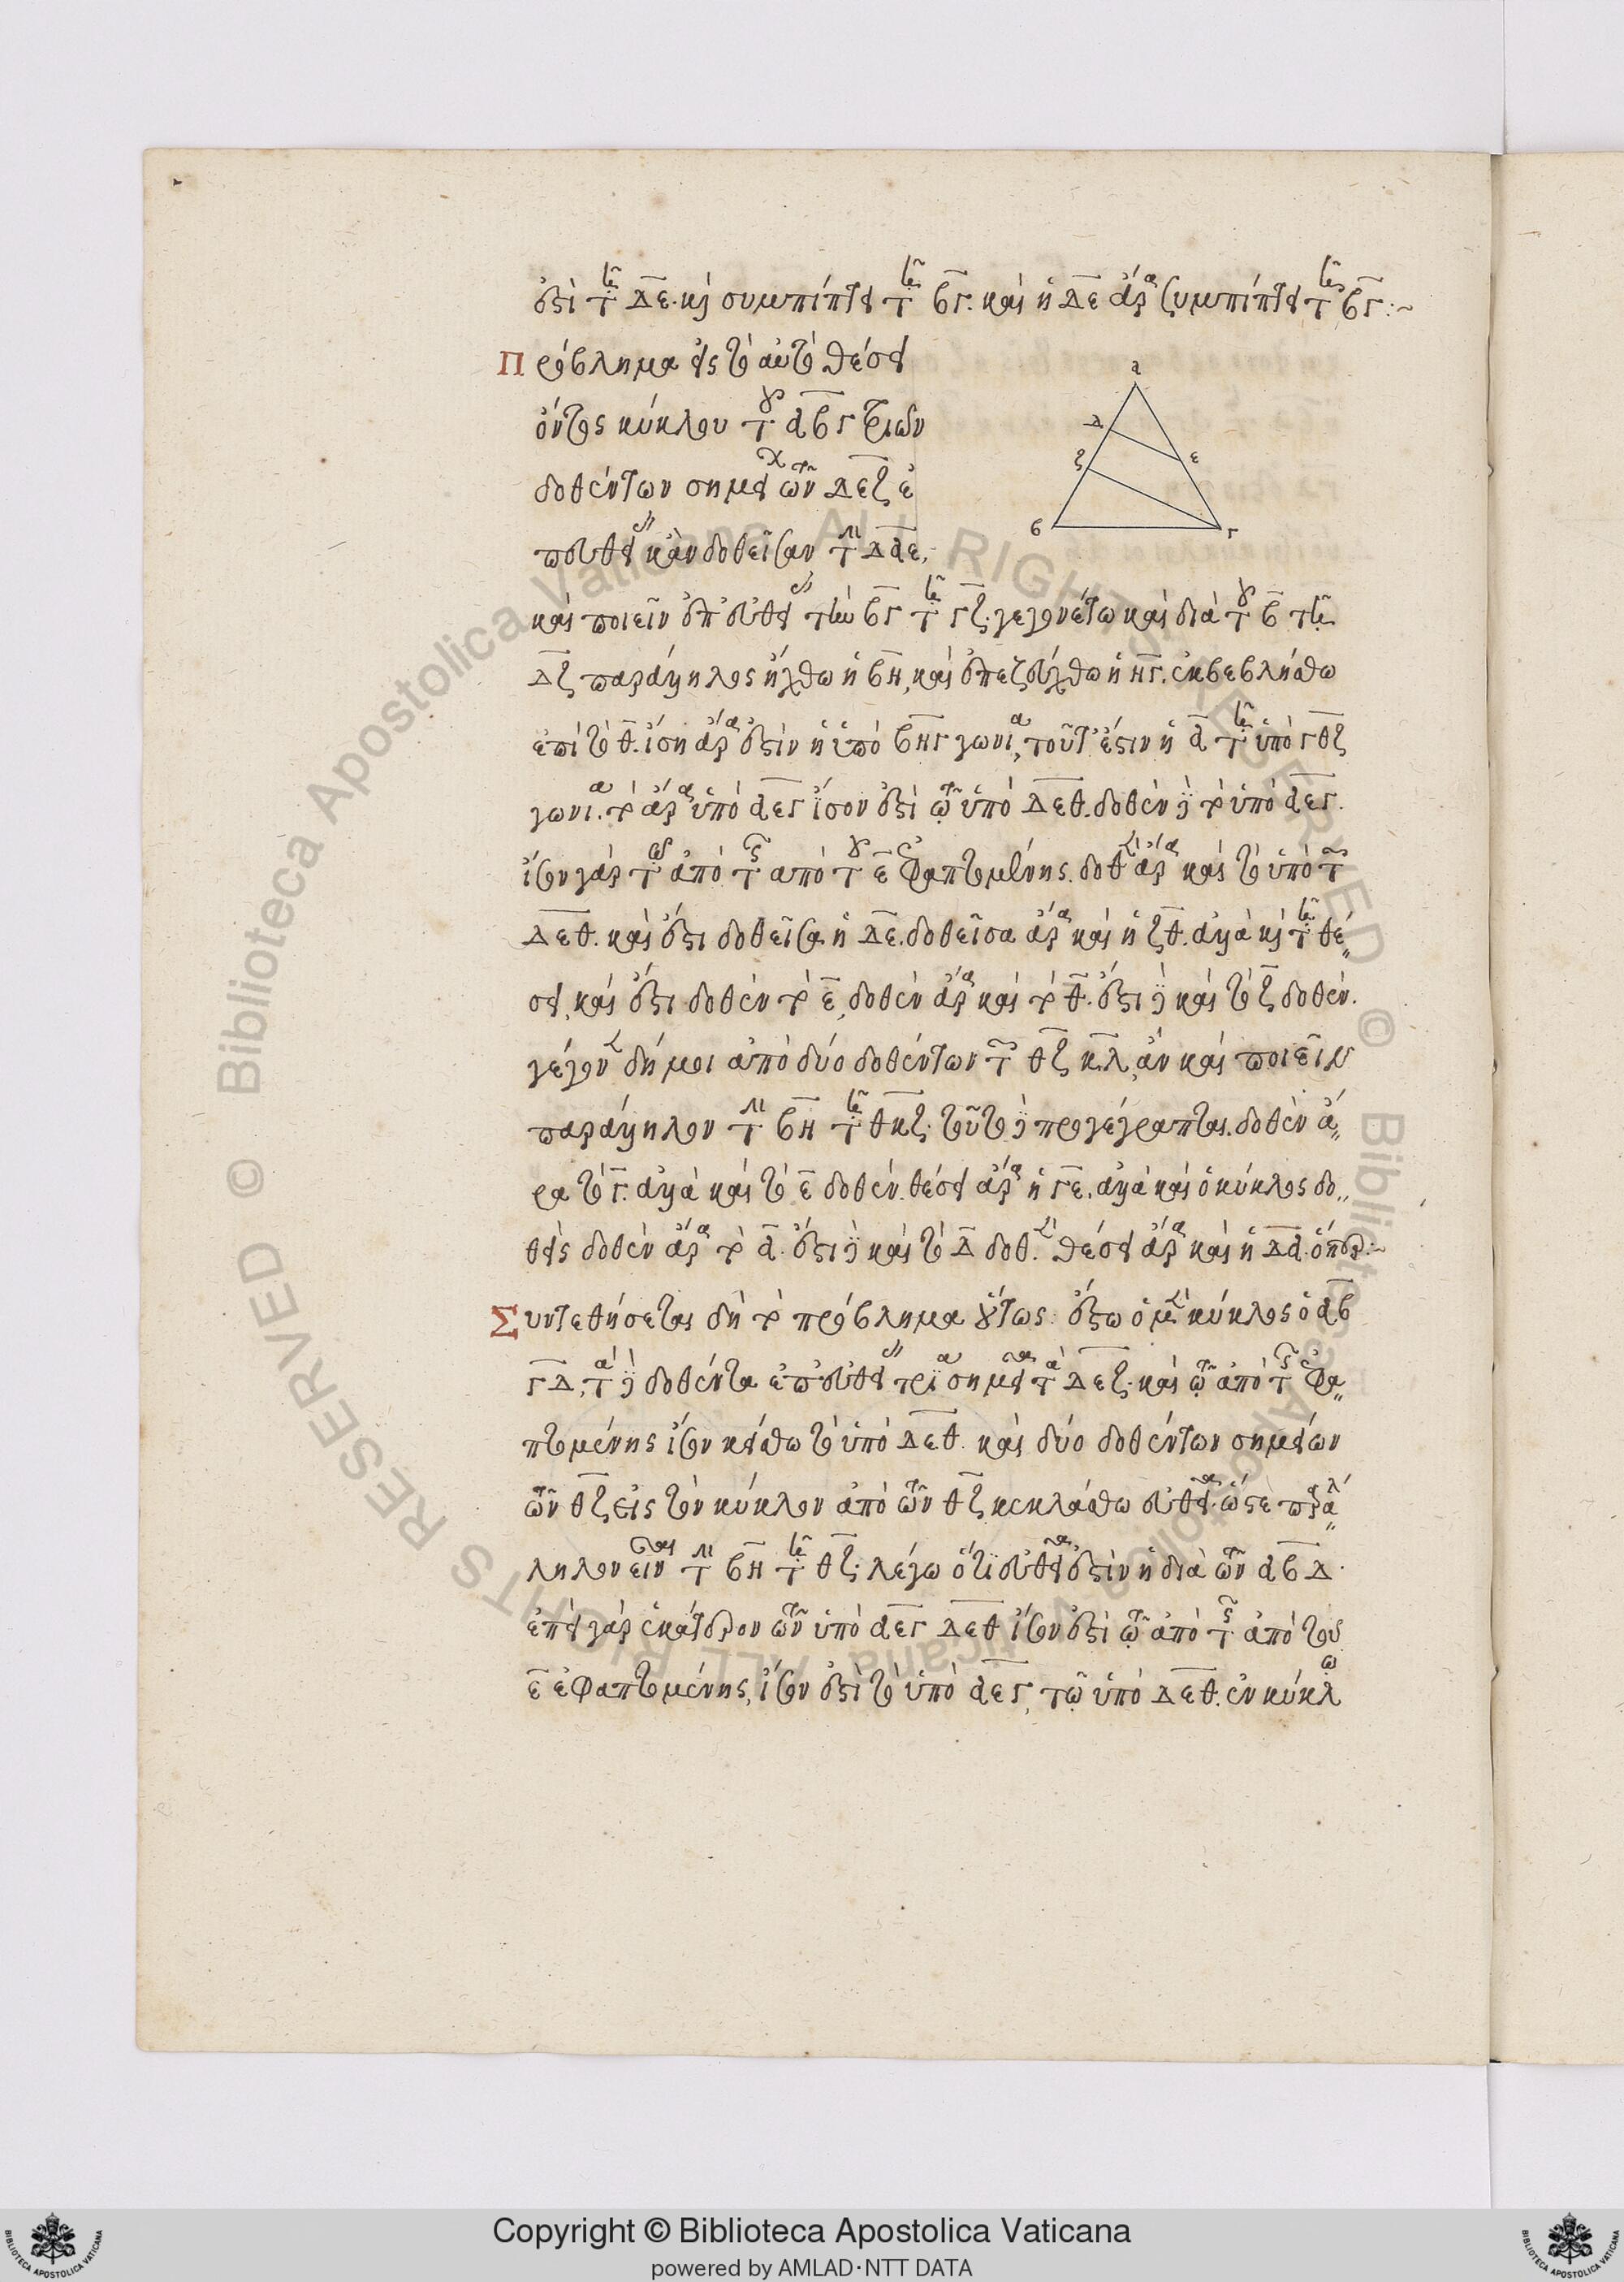 ἐστὶ τῇ ΔΕ. καὶ συμπίπτει τῇ ΒΓ. καὶ ἡ ΔΕ ἄρα συμπίπτει τῇ ΒΓ :~
Πρόβλημα εἰς τὸ αὐτὸ θέσει
ὄντος κύκλου τοῦ ΑΒΓ τριῶν
δοθέντων σημείων τῶν ΔΕΖ ἐ
π' εὐθείας κλᾶν δοθεῖσαν τὴν ΔΑΕ,
καὶ ποιεῖν ἐπ' εὐθείας τὴν ΒΓ τῇ ΓΖ. γεγονέτω καὶ διὰ τοῦ Β τῇ
ΔΖ παράλληλος ἤχθω ἡ ΒΗ, καὶ ἐπεζεύχθω ἡ ΗΓ. ἐκβεβλήσθω
ἐπὶ τὸ Θ. ἴση ἄρα ἐστὶν ἡ ὑπὸ ΒΗΓ γωνία, τουτέστιν ἡ Α τῇ ὑπὸ ΓΘΖ
γωνίᾳ. τὸ ἄρα ὑπὸ ΑΕΓ ἴσον ἐστὶ τῷ ὑπὸ ΔΕΘ. δοθὲν δὲ τὸ ὑπὸ ΑΕΓ.
ἴσον γὰρ τῷ ἀπὸ τῆς ἀπὸ τοῦ Ε ἐφαπτομένης. δοθὲν ἄρα καὶ τὸ ὑπὸ τῶν
ΔΕΘ. καὶ ἔστι δοθεῖσα ἡ ΔΕ. δοθεῖσα ἄρα καὶ ἡ ΖΘ. ἀλλὰ καὶ τῇ θέ
σει, καὶ ἔστι δοθὲν τὸ Ε, δοθὲν ἄρα καὶ τὸ Θ. ἔστι δὲ καὶ τὸ Ζ δοθέν.
γέγονεν δή μοι ἀπὸ δύο δοθέντων τῶν ΘΖ κλᾶν καὶ ποιεῖν
παράλληλον τὴν ΒΗ τῇ ΘΚΖ. τοῦτο δὲ προγέγραπται. δοθὲν ἄ
ρα τὸ Γ. ἀλλὰ καὶ τὸ Ε δοθέν. θέσει ἄρα ἡ ΓΕ. ἀλλὰ καὶ ὁ κύκλος δο
θεὶς δοθὲν ἄρα τὸ Α. ἔστι δὲ καὶ τὸ Δ δοθέν. θέσει ἄρα καὶ ἡ ΔΑ. ὅπερ :~
Συντεθήσεται δὴ τὸ πρόβλημα οὕτως. ἔστω ὁ μὲν κύκλος ὁ ΑΒ
ΓΔ, τὰ δὲ δοθέντα ἐπ' εὐθείας τρία σημεῖα τὰ ΔΕΖ. καὶ τῷ ἀπὸ τῆς ἐφα
πτομένης ἴσον κείσθω τὸ ὑπὸ ΔΕΘ. καὶ δύο δοθέντων σημείων
τῶν ΘΖ εἰς τὸν κύκλον ἀπὸ τῶν ΘΖ κεκλάσθω εὐθεῖα. ὥστε παράλ
ληλον εἶναι τὴν ΒΗ τῇ ΘΖ. λέγω ὅτι εὐθεῖα ἐστὶν ἡ διὰ τῶν ΑΒΔ.
ἐπεὶ γὰρ ἑκάτερον τῶν ὑπὸ ΑΕΓ ΔΕΘ ἴσον ἐστὶ τῷ ἀπὸ τῆς ἀπὸ τοῦ
Ε ἐφαπτομένης, ἴσον ἐστὶ τὸ ὑπὸ ΑΕΓ, τῷ ὑπὸ ΔΕΘ. ἐν κύκλῳ
α
Δ
ε
ζ
β
γ
Copyright © Biblioteca Apostolica Vaticana
powered by AMLAD·NTT DATA
Biblioteca Apostolica Vaticana ALL RIGHTS RESERVED ©